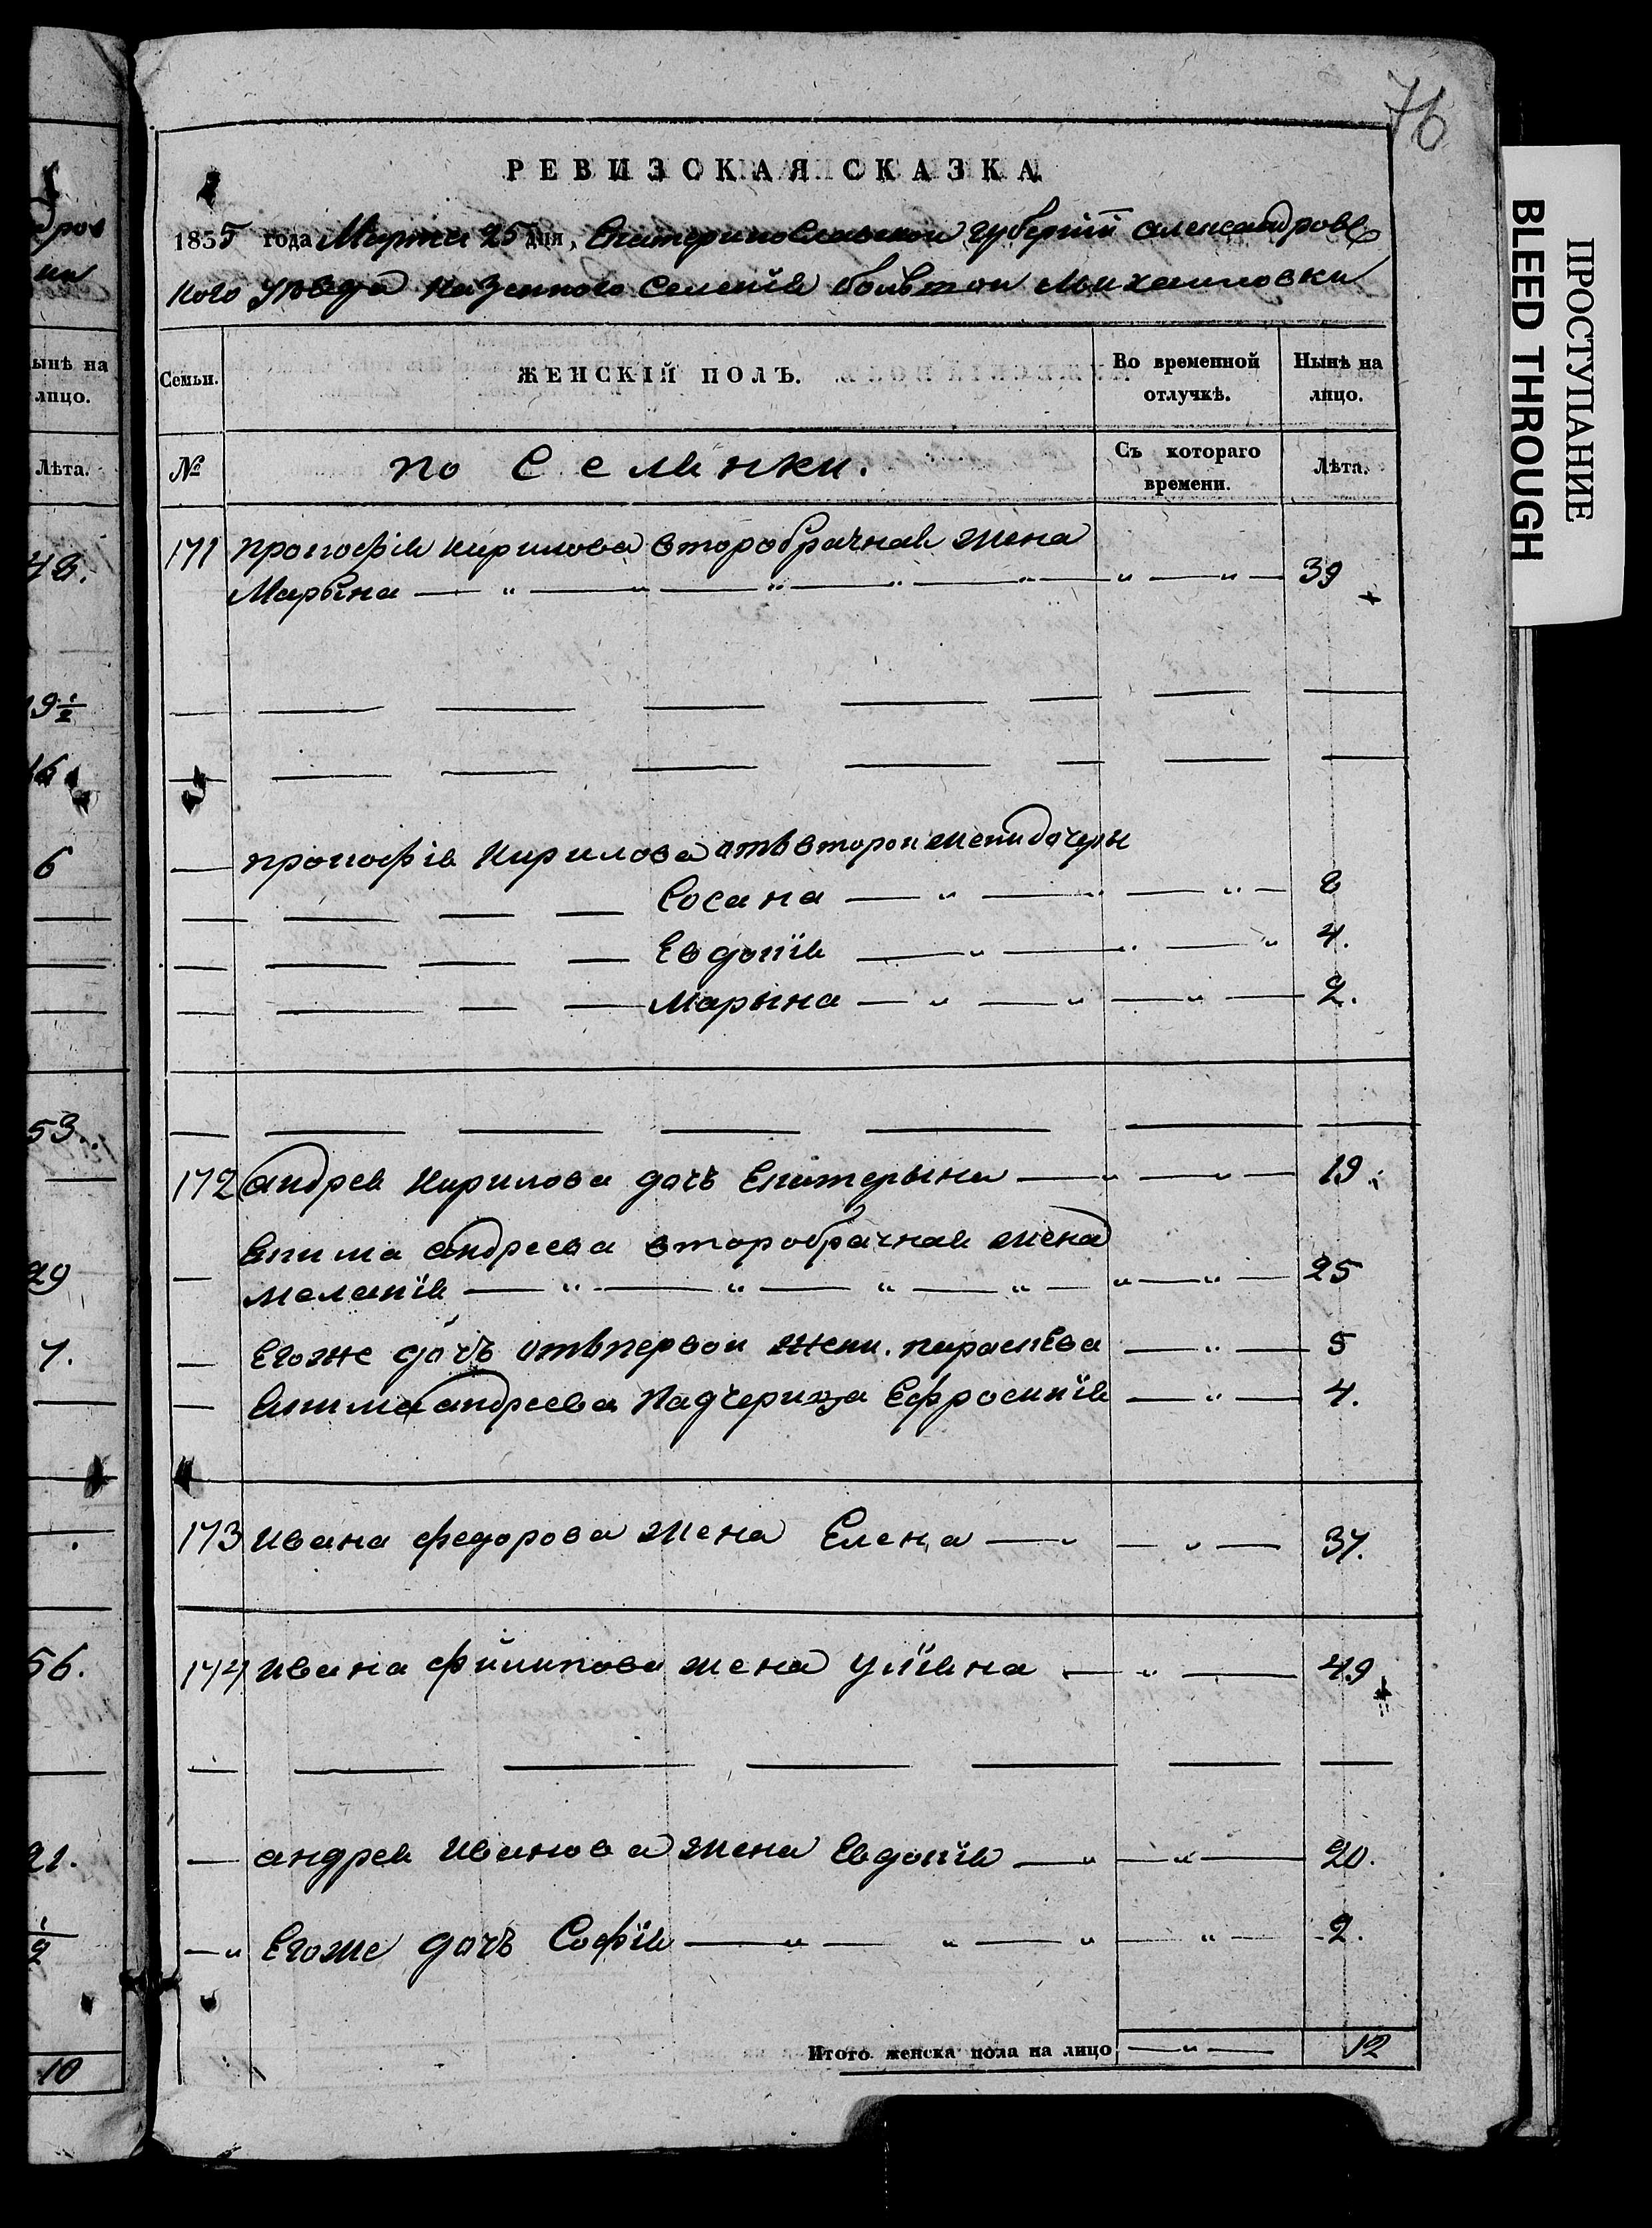 76
РЕВИЗСКАЯ СКАЗКА
1835 года Марта 25 дня, Екатеринославской губерніи александровс
кого уезда казенного Селенія большой Михаиловки
Семьи.
ЖЕНСКІЙ ПОЛЪ.
Во временной отлучкѣ.
Нынѣ на лицо.
№
по
Съ котораго времени.
Лѣта.
171 прокофія кирилова второбрачная жена
Марына — " — " — " — " — " — " — " — 39
прокофія Кирилова отъ второй жени дочеры
Сосана — " — " — " — 8
Евдокія — " — " — " 4.
Марына — " — " — " — 2.
172 андрея Кирилова дочъ Екатерына — " — " — 19.
Екима андреева второбрачная жена
Меланія — " — " — " — " — " — " — 25
Егоже дочъ отъ первой жени. параскева — " — 5
Екима андреева Падчерица Ефросинія — " — 4.
173 Ивана федорова жена Елена — " — " — 37.
174 Ивана филипова жена уліяна — " — 49
— андрея Иванова жена Евдокія — " — " — 20.
— " Егоже дочъ Софія — " — " — " — " — 2.
Итого женска пола на лицо — " — 12
ыне на
лицо.
Лѣта.
48.
19 1/2
16
6
53.
29
7.
56.
21.
1/2
10
ПРОСТУПАНИЕ
BLEED THROUGH